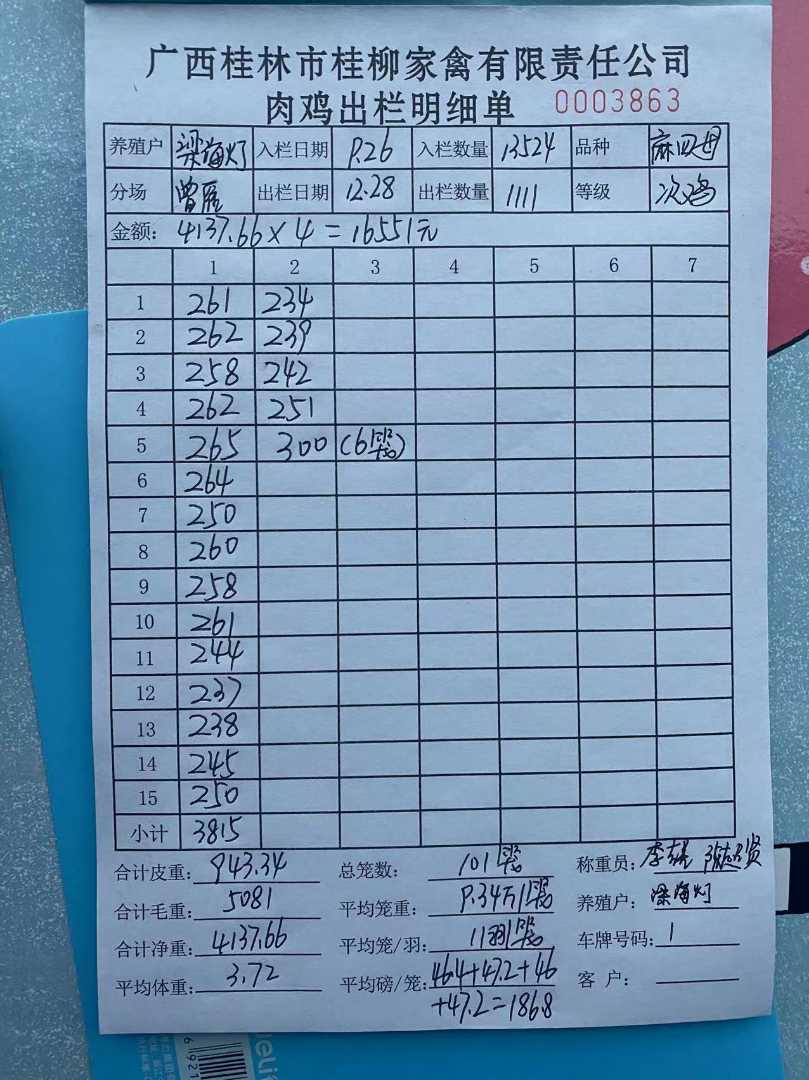 广西桂林市桂柳家禽有限责任公司
肉鸡出栏明细单 0003863
养殖户 梁海灯 入栏日期 9.26 入栏数量 13524 品种 麻四母
分场 出栏日期 12.28 出栏数量 1111 等级 次鸡
金额: 4137.66×4=16551元
1 2 3 4 5 6 7
1 261 234
2 262 239
3 258 242
4 262 251
5 265 300 (6笼)
6 264
7 250
8 260
9 258
10 261
11 244
12 237
13 238
14 245
15 250
小计 3815
合计皮重: 943.34 总笼数: 101笼 称重员:
合计毛重: 5081 平均笼重: 9.34斤/笼 养殖户: 梁海灯
合计净重: 4137.66 平均笼/羽: 11羽/笼 车牌号码: 1
平均体重: 3.72 平均磅/笼: 46.4+47.2+46 客户:
+47.2=186.8